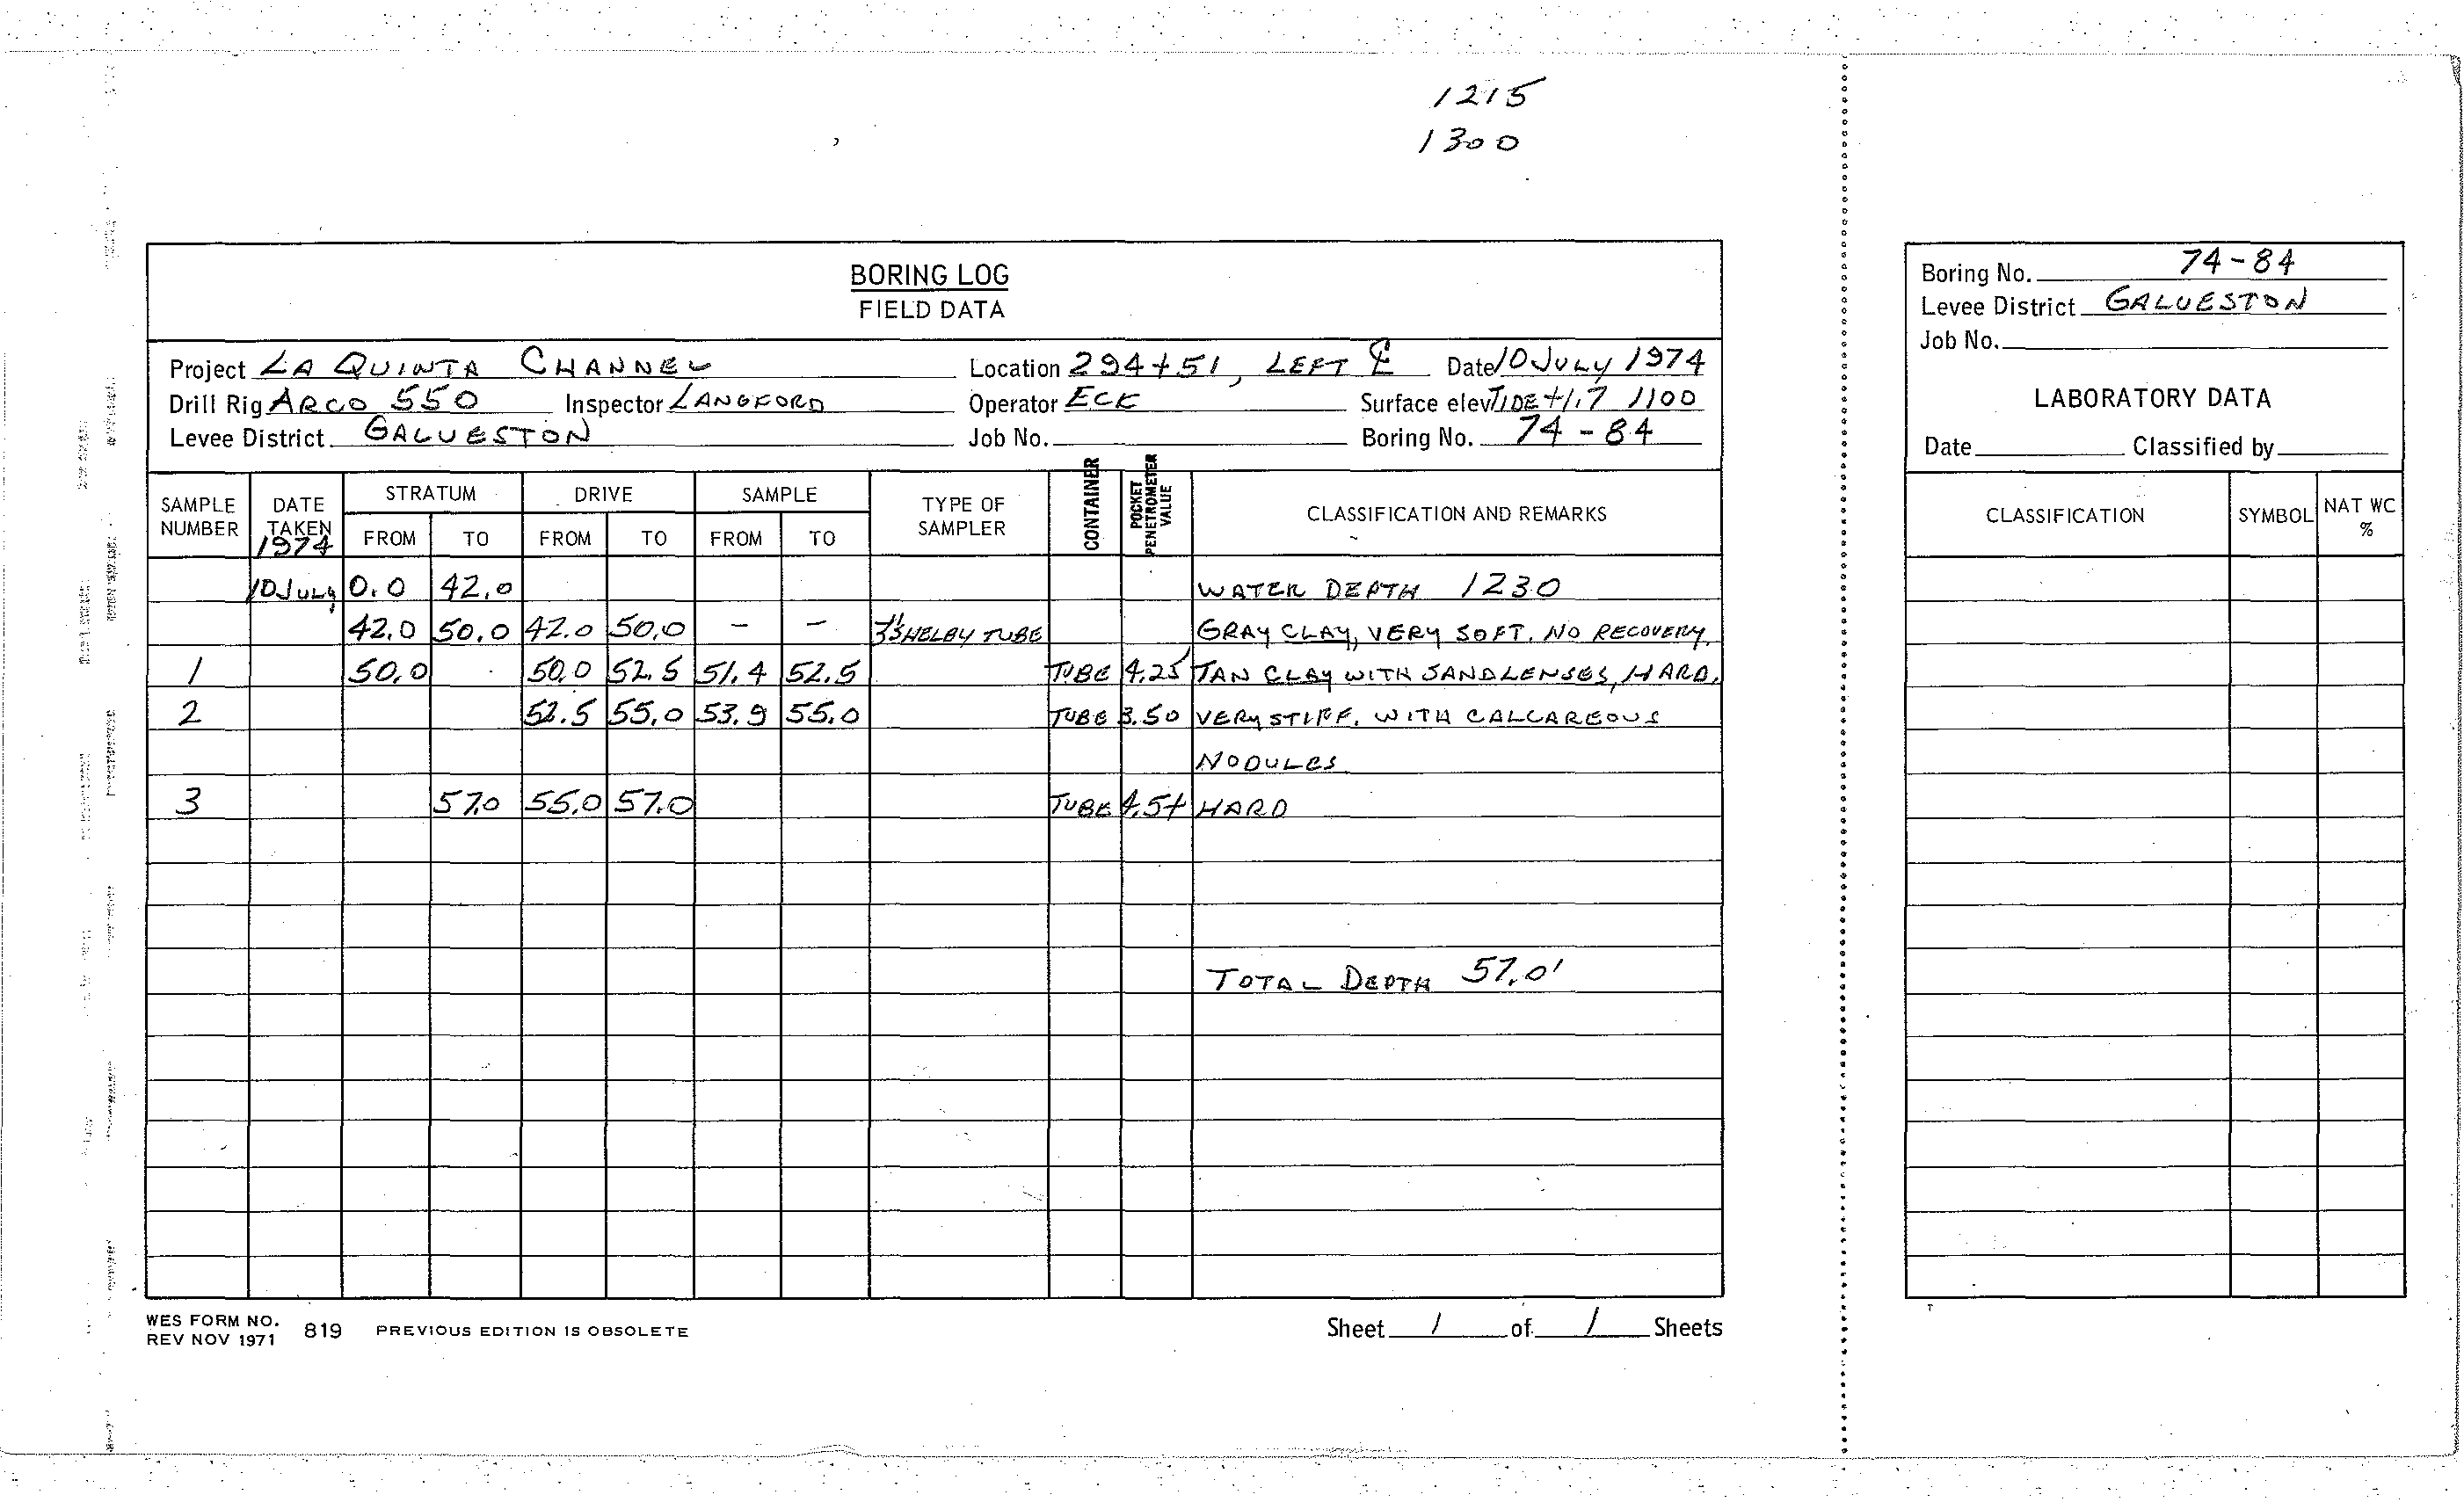 1215
1300
BORING LOG
FIELD DATA
Project LA QUINTA CHANNEL Location 294+51, LEFT ℄ Date 10 JULY 1974
Drill Rig ARCO 550 Inspector LANGFORD Operator ECK Surface elev TIDE +1.7 1100
Levee District GALVESTON Job No. Boring No. 74-84
SAMPLE NUMBER DATE TAKEN 1974 STRATUM FROM TO DRIVE FROM TO SAMPLE FROM TO TYPE OF SAMPLER CONTAINER POCKET PENETROMETER VALUE CLASSIFICATION AND REMARKS
10 JULY 0.0 42.0 WATER DEPTH 1230
42.0 50.0 42.0 50.0 - - 3" SHELBY TUBE GRAY CLAY, VERY SOFT. NO RECOVERY.
1 50.0 50.0 52.5 51.4 52.5 TUBE 4.25 TAN CLAY WITH SANDLENSES, HARD,
2 52.5 55.0 53.9 55.0 TUBE 3.50 VERY STIFF, WITH CALCAREOUS
NODULES
3 57.0 55.0 57.0 TUBE 4.5+ HARD
TOTAL DEPTH 57.0'
WES FORM NO. 819 PREVIOUS EDITION IS OBSOLETE
REV NOV 1971
Sheet 1 of 1 Sheets
Boring No. 74-84
Levee District GALVESTON
Job No.
LABORATORY DATA
Date Classified by
CLASSIFICATION SYMBOL NAT WC %